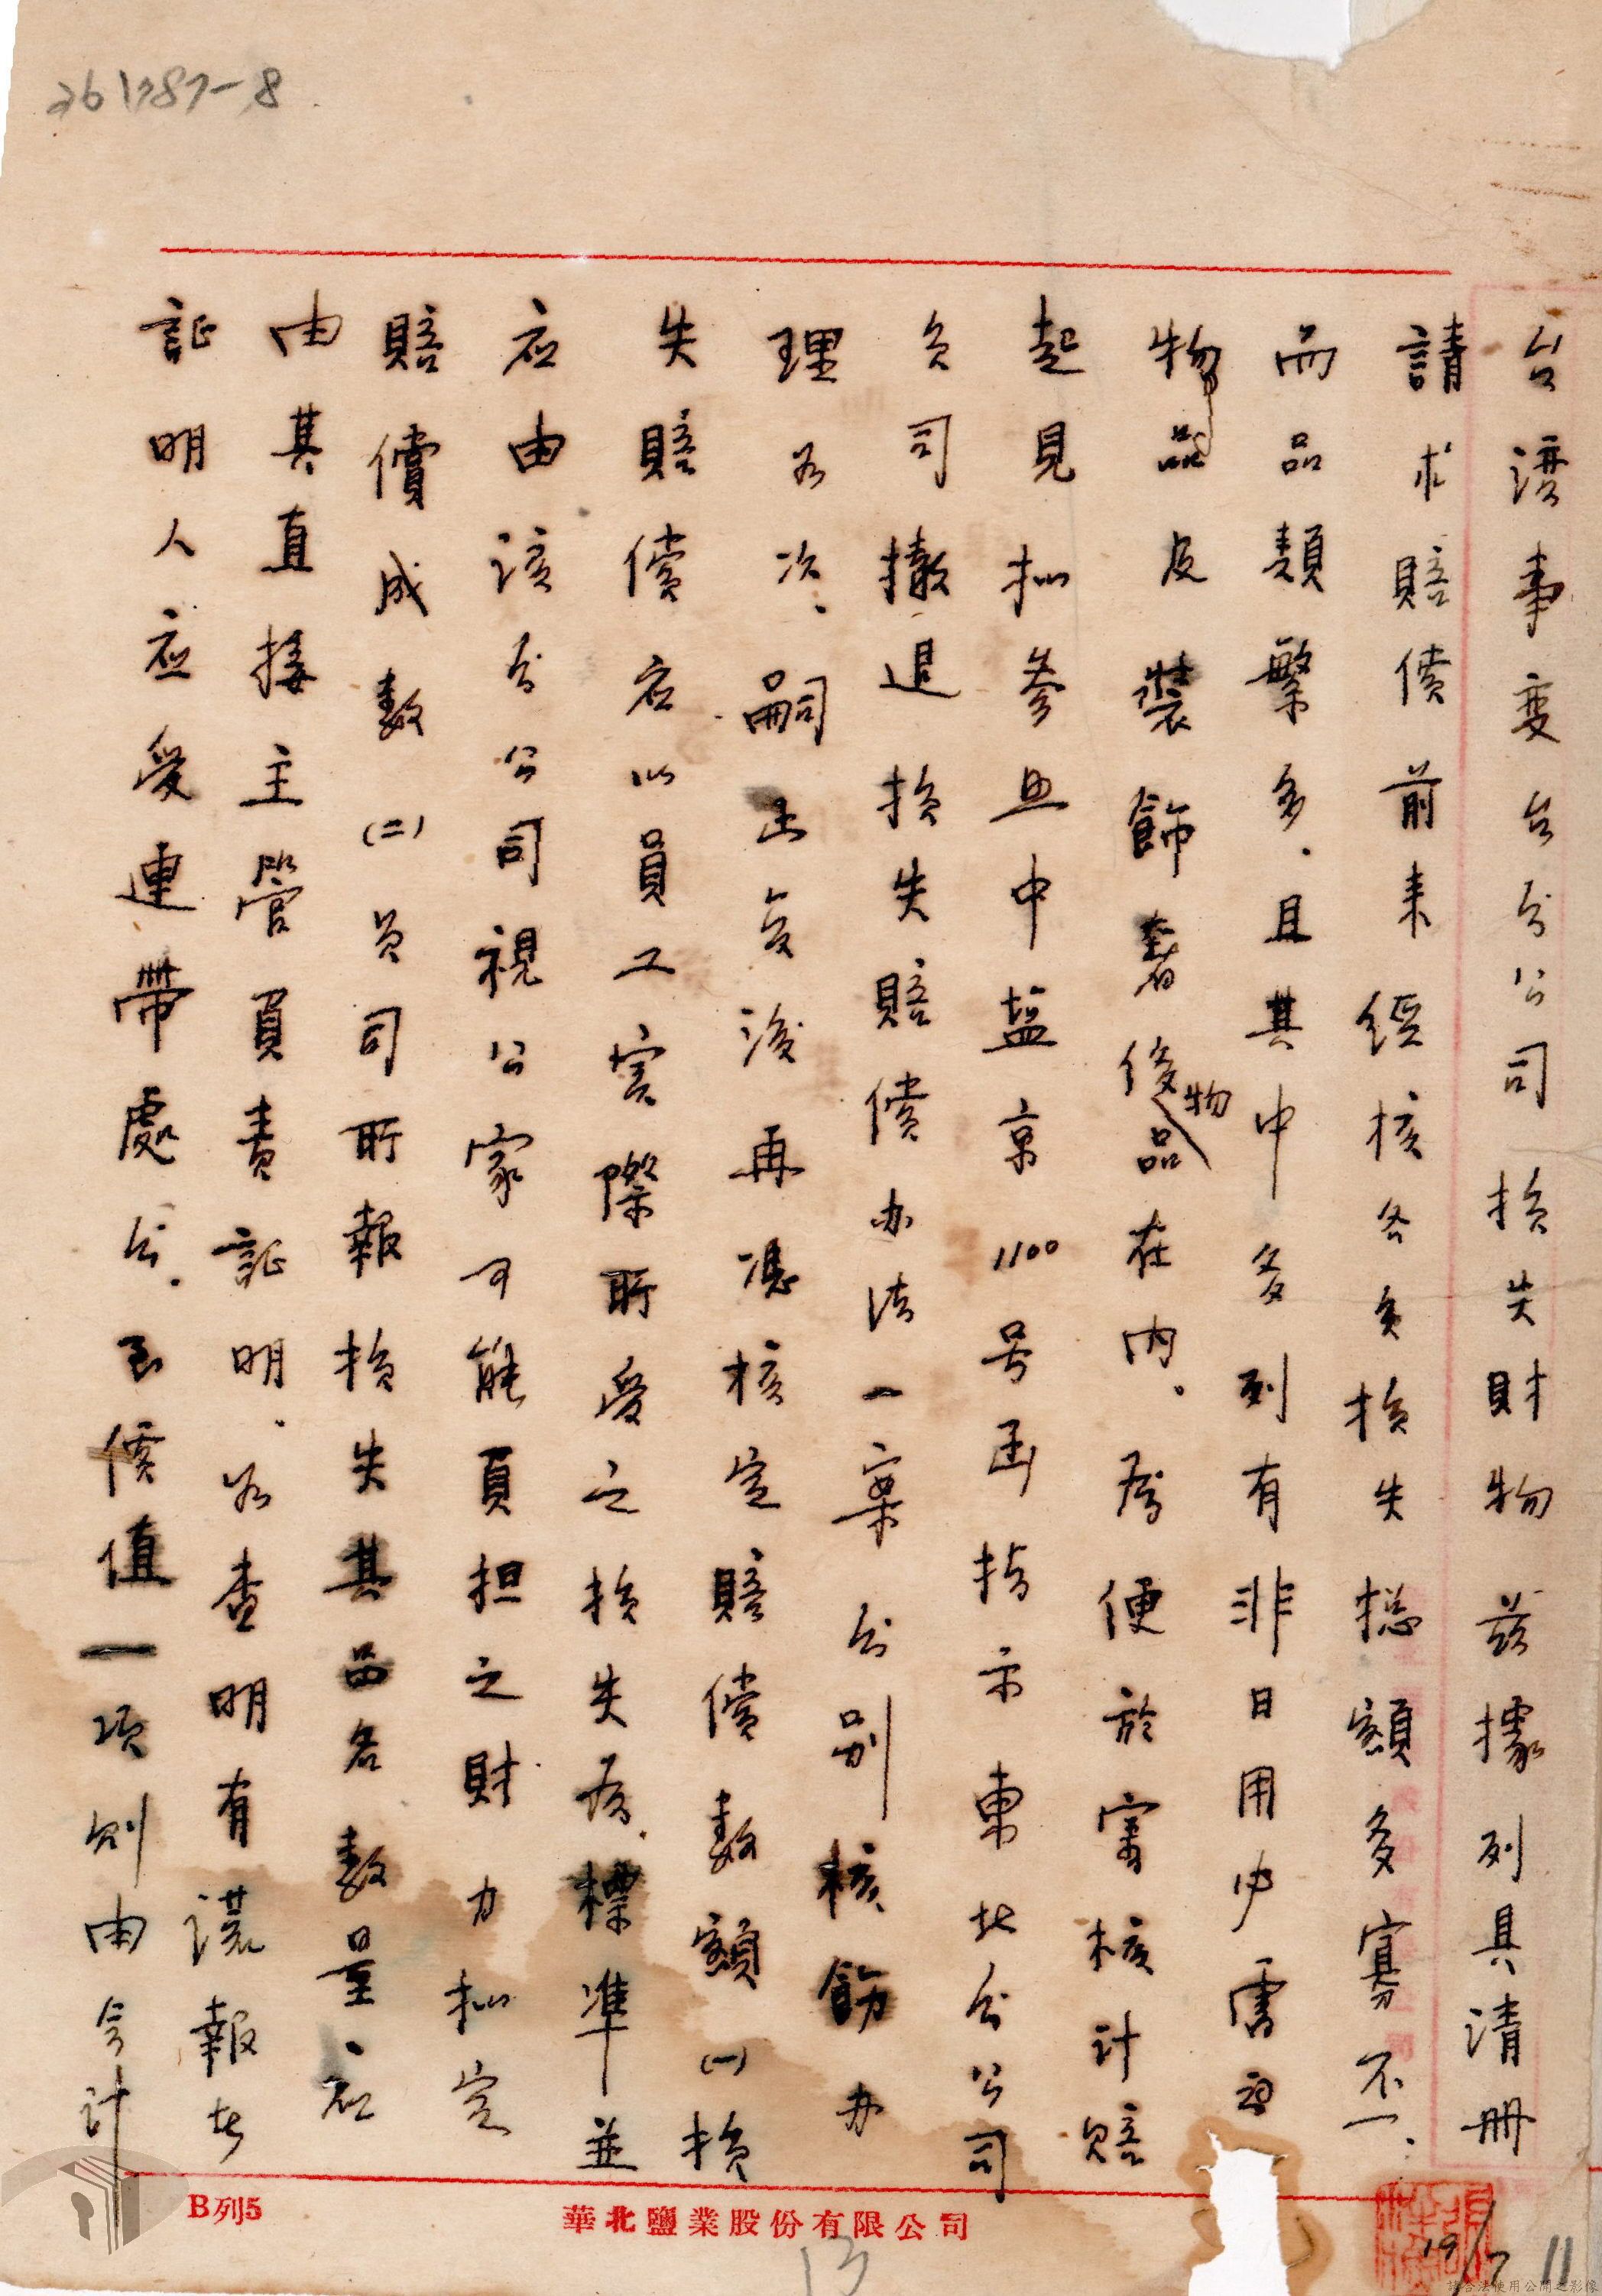 261787-8
台灣事変台分公司損失財物茲據列具清冊
請求賠償前来經核各員損失總額多寡不一.
而品類繁多.且其中多列有非日用必需
物品及裝飾奢侈物品在内.為便於審核計賠
起見拟參照中盐京1100号函指示東北分公司
員司撤退損失賠償办法一案分別核飭办
理如次.嗣函復後再憑核定賠償数額(一)損
失賠償应以員工實際所受之損失為標準並
应由該分公司視公家可能負担之財力拟定
賠償成数(二)員司所報損失其品名数量.应
由其直接主管負責証明.如查明有謊報者
証明人应受連帶處分.至價值一項則由会計
B列5
華北鹽業股份有限公司
13
19/7
11